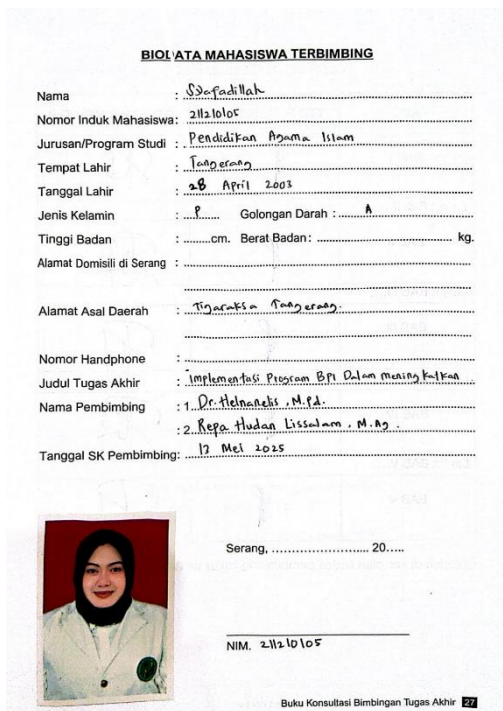 BIODATA MAHASISWA TERBIMBING
Nama : Syafadillah
Nomor Induk Mahasiswa: 211210105
Jurusan/Program Studi : Pendidikan Agama Islam
Tempat Lahir : Tangerang
Tanggal Lahir : 28 April 2003
Jenis Kelamin : P Golongan Darah : A
Tinggi Badan : ........cm. Berat Badan: .................................. kg.
Alamat Domisili di Serang :
Alamat Asal Daerah : Tigaraksa Tangerang.
Nomor Handphone :
Judul Tugas Akhir : Implementasi Program BPI Dalam meningkatkan
Nama Pembimbing : 1. Dr. Helnanelis, M.Pd.
: 2. Repa Hudan Lissalam, M.Ag.
Tanggal SK Pembimbing: 13 Mei 2025
Serang, ........................ 20.....
NIM. 211210105
Buku Konsultasi Bimbingan Tugas Akhir 27